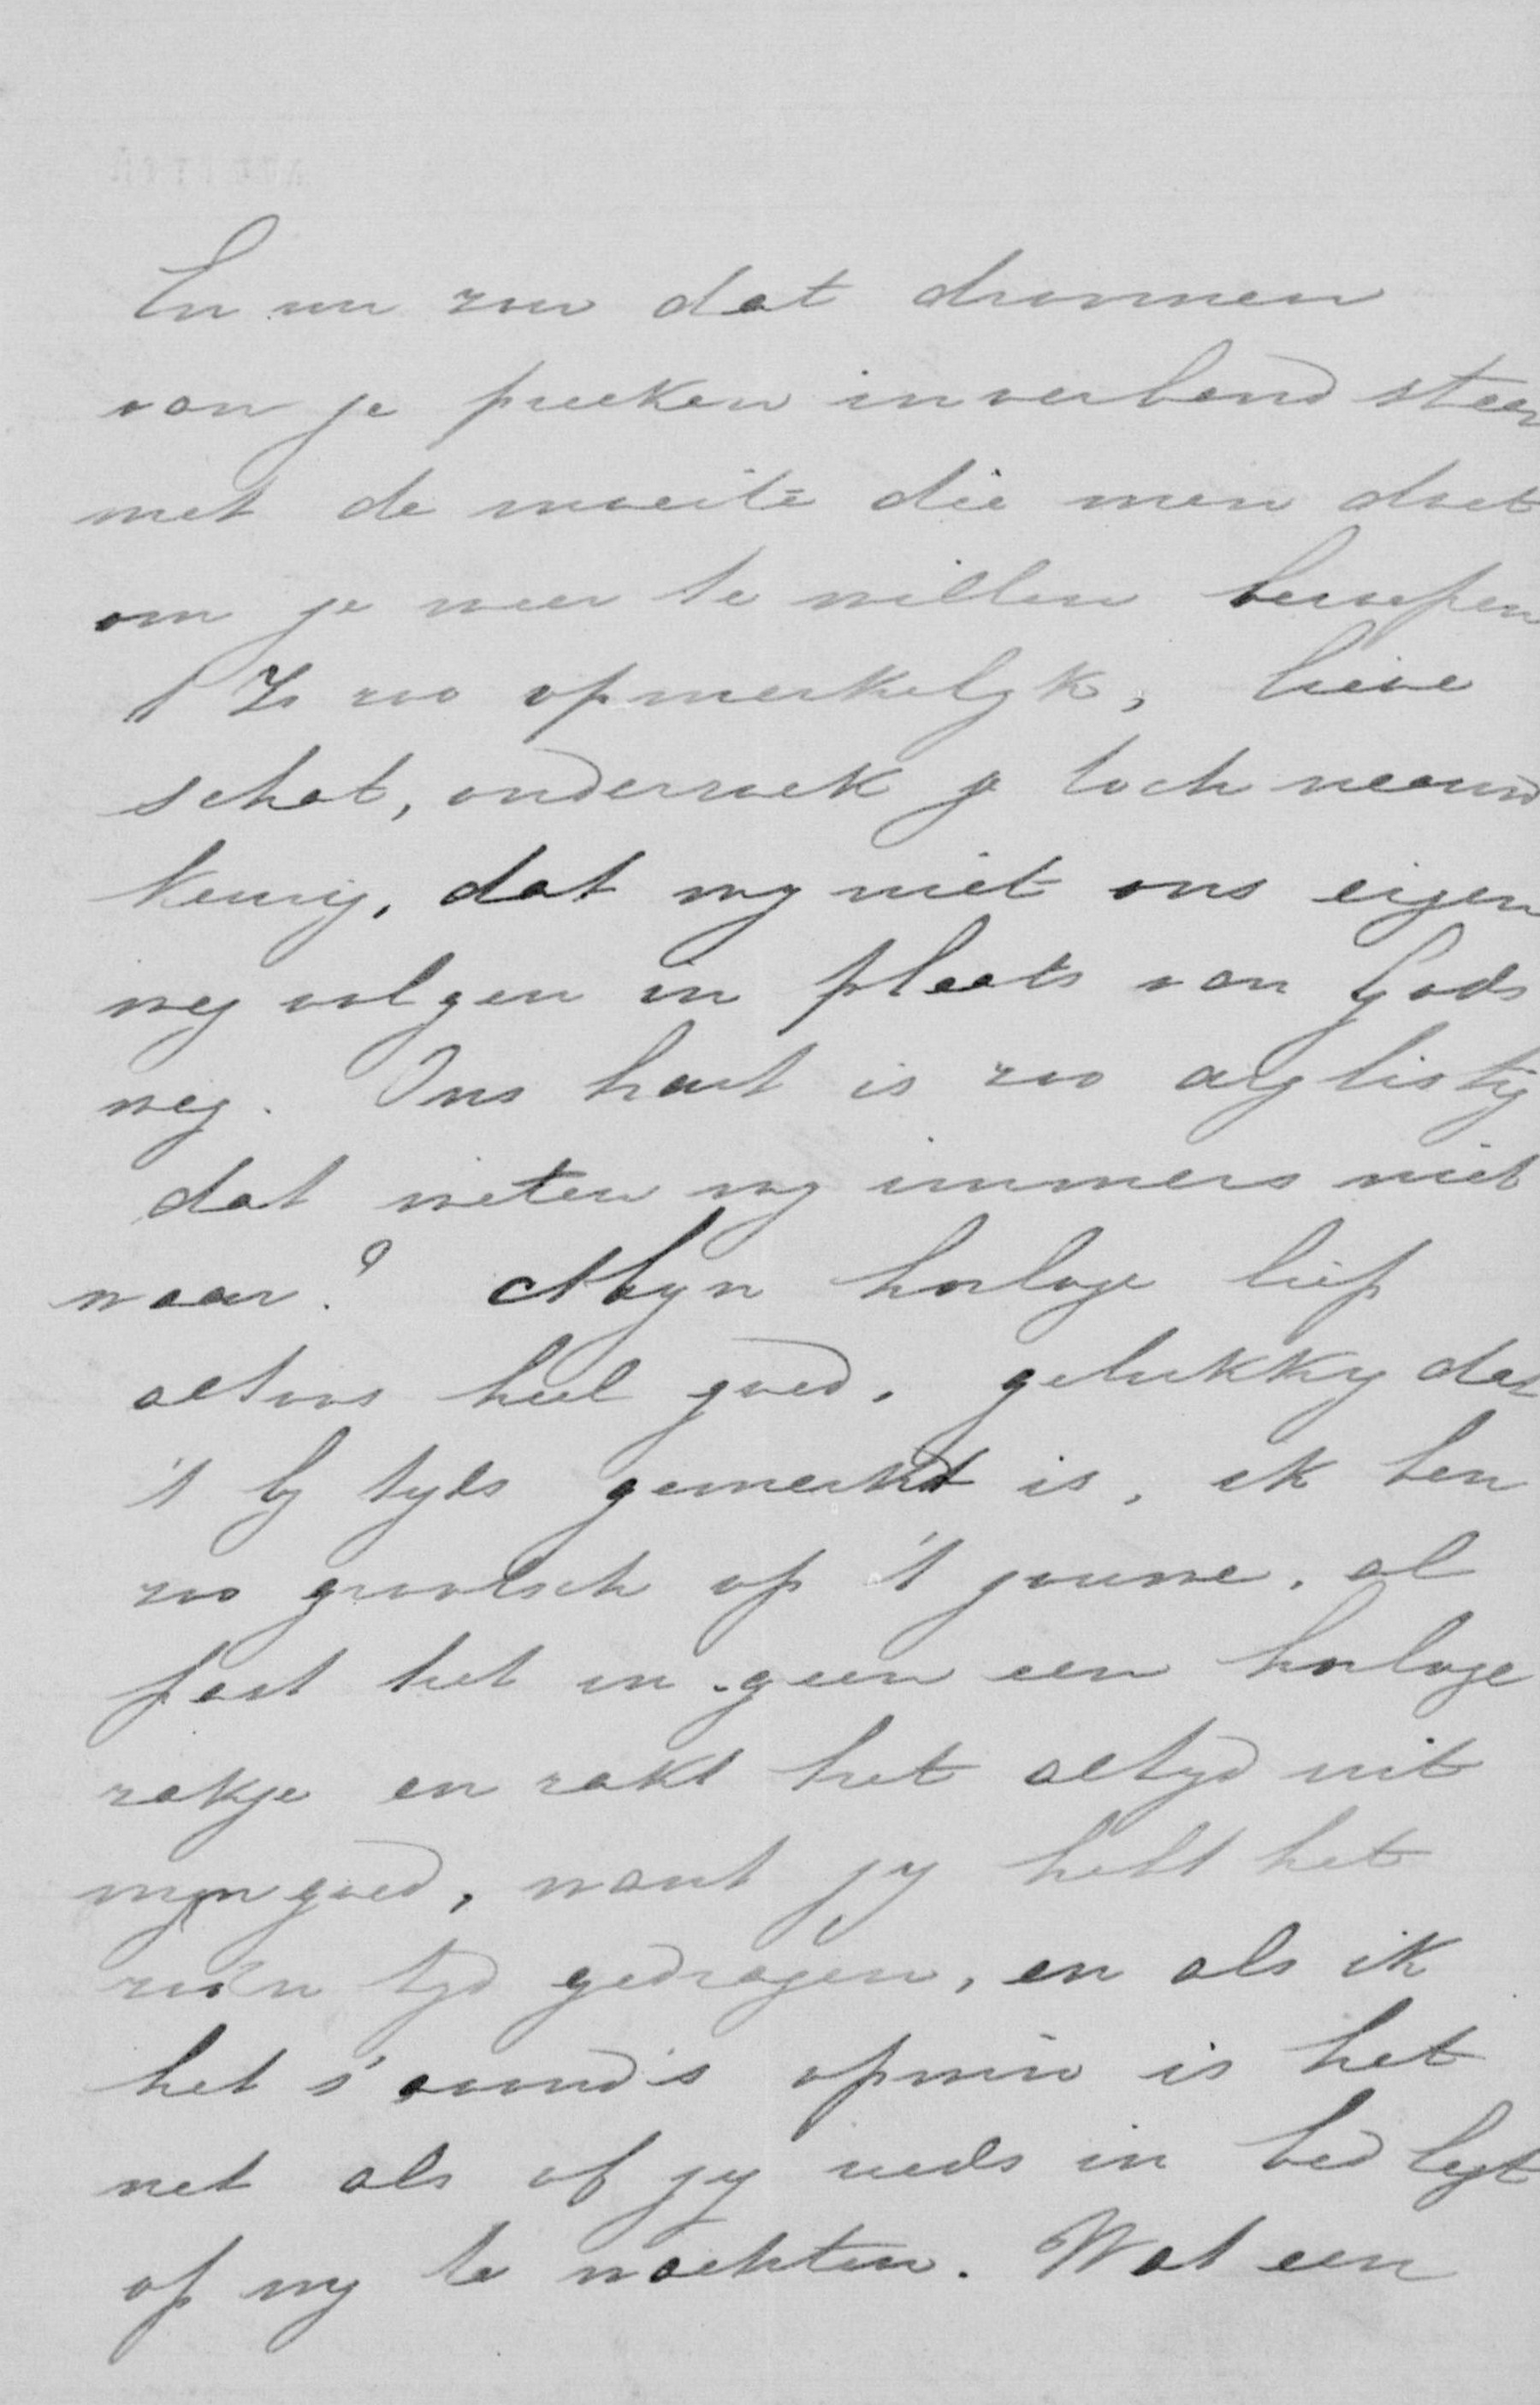 En nu zou dat droomen
van je preeken in verband staan
met de moeite die men doet
om je weer te willen beroepen
't Is zoo opmerkelyk, lieve
schat, onderzoek je toch naauw
keurig, dat wy niet ons eigen
weg volgen in plaats van Gods
weg. Ons hart is zoo arglistig
dat weten wy immers niet
waar? Myn horloge liep
altoos heel goed, gelukkig dat
't by tyds gemerkt is, ik ben
zoo grootsch op 't jouwe, al
past het in geen een horloge
zakje en zakt het altyd uit
myn goed, want jy hebt het
zoo'n tyd gedragen, en als ik
het s'avond's opwin is het
net als of jy reeds in bed lygt
op my te wachten. Wat een